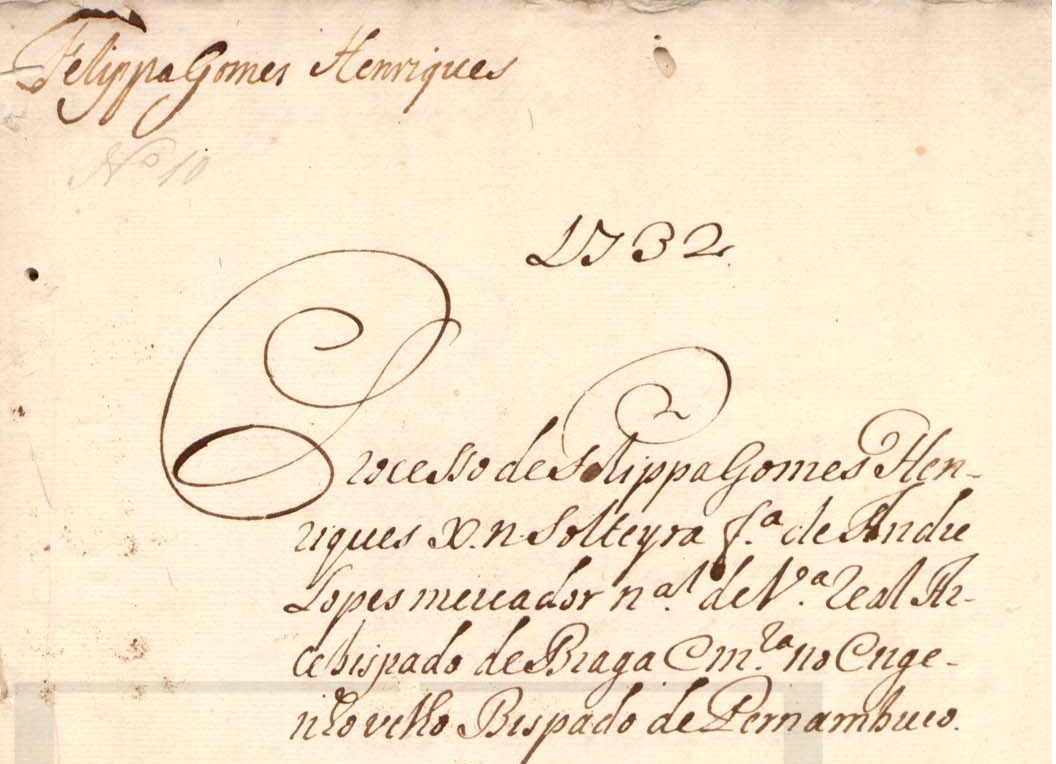 Felippa Gomes Henriques
No 10
1732
Processo de Felippa Gomes Hen-
riques X. n. Solteyra f.ª de Andre
Lopes mercador n.al de V.ª Real Ar-
cebispado de Braga E m.ra no Enge-
nho velho Bispado de Pernambuco.